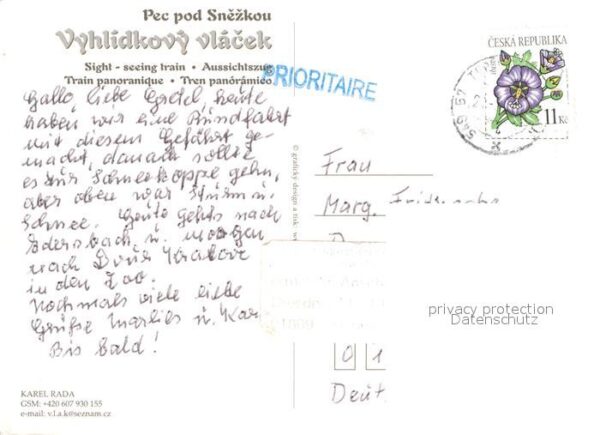 Pec pod Sněžkou
Vyhlídkový vláček
Sight - seeing train • Aussichtszug
Train panoranique • Tren panórámieo
PRIORITAIRE
ČESKÁ REPUBLIKA
11 Kč
Hallo, liebe Gretel, heute
haben wir eine Rundfahrt
mit diesem Gefährt ge-
macht, danach sollte
es zur Schneekoppe gehn,
aber oben war Sturm u.
Schnee. Heute gehts nach
Adersbach u. morgen
nach Dvur Kralove
in den Zoo.
Nochmals viele liebe
Grüße Marlies u. Kar
Bis bald!
© grafický design a tisk:
Frau
Marg.
0 1
Deut
privacy protection
Datenschutz
KAREL RADA
GSM: +420 607 930 155
e-mail: v.l.a.k@seznam.cz